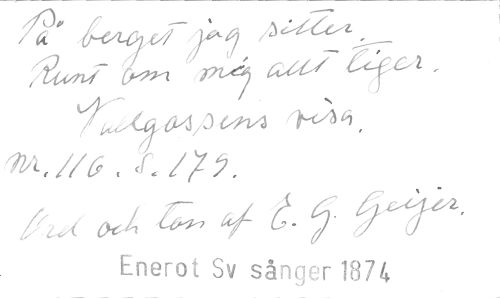 På berget jag sitter.
Runt om mig allt tiger.
Vallgossens visa.
nr. 116. s. 179.
Ord och ton af E. G. Geijer.
Enerot Sv sånger 1874